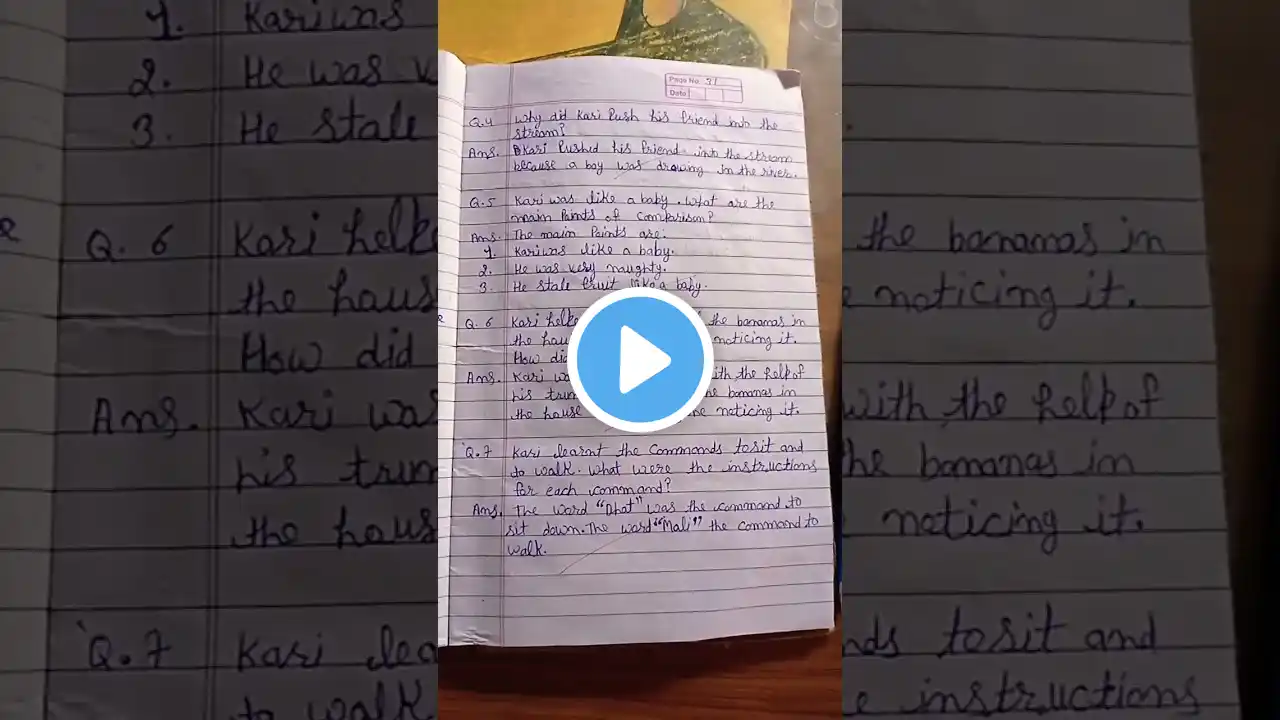 Page No. 31
Date
Q.4 Why did Kari Push his friend into the
stream?
Ans. Kari Pushed his friend into the stream
because a boy was drowing in the river.
Q.5 Kari was like a baby. What are the
main Points of Comparison?
Ans. The main Points are:
1. Kari was like a baby.
2. He was very naughty.
3. He stale fruit like a baby.
Q.6 Kari the bananas in
the noticing it.
How did
Ans. Kari was with the help of
his trun the bananas in
the house noticing it.
Q.7 Kari learnt the Commands to sit and
to walk. What were the instructions
for each command?
Ans. The word "Dhat" was the command to
sit down. The word "Mali" the command to
walk.